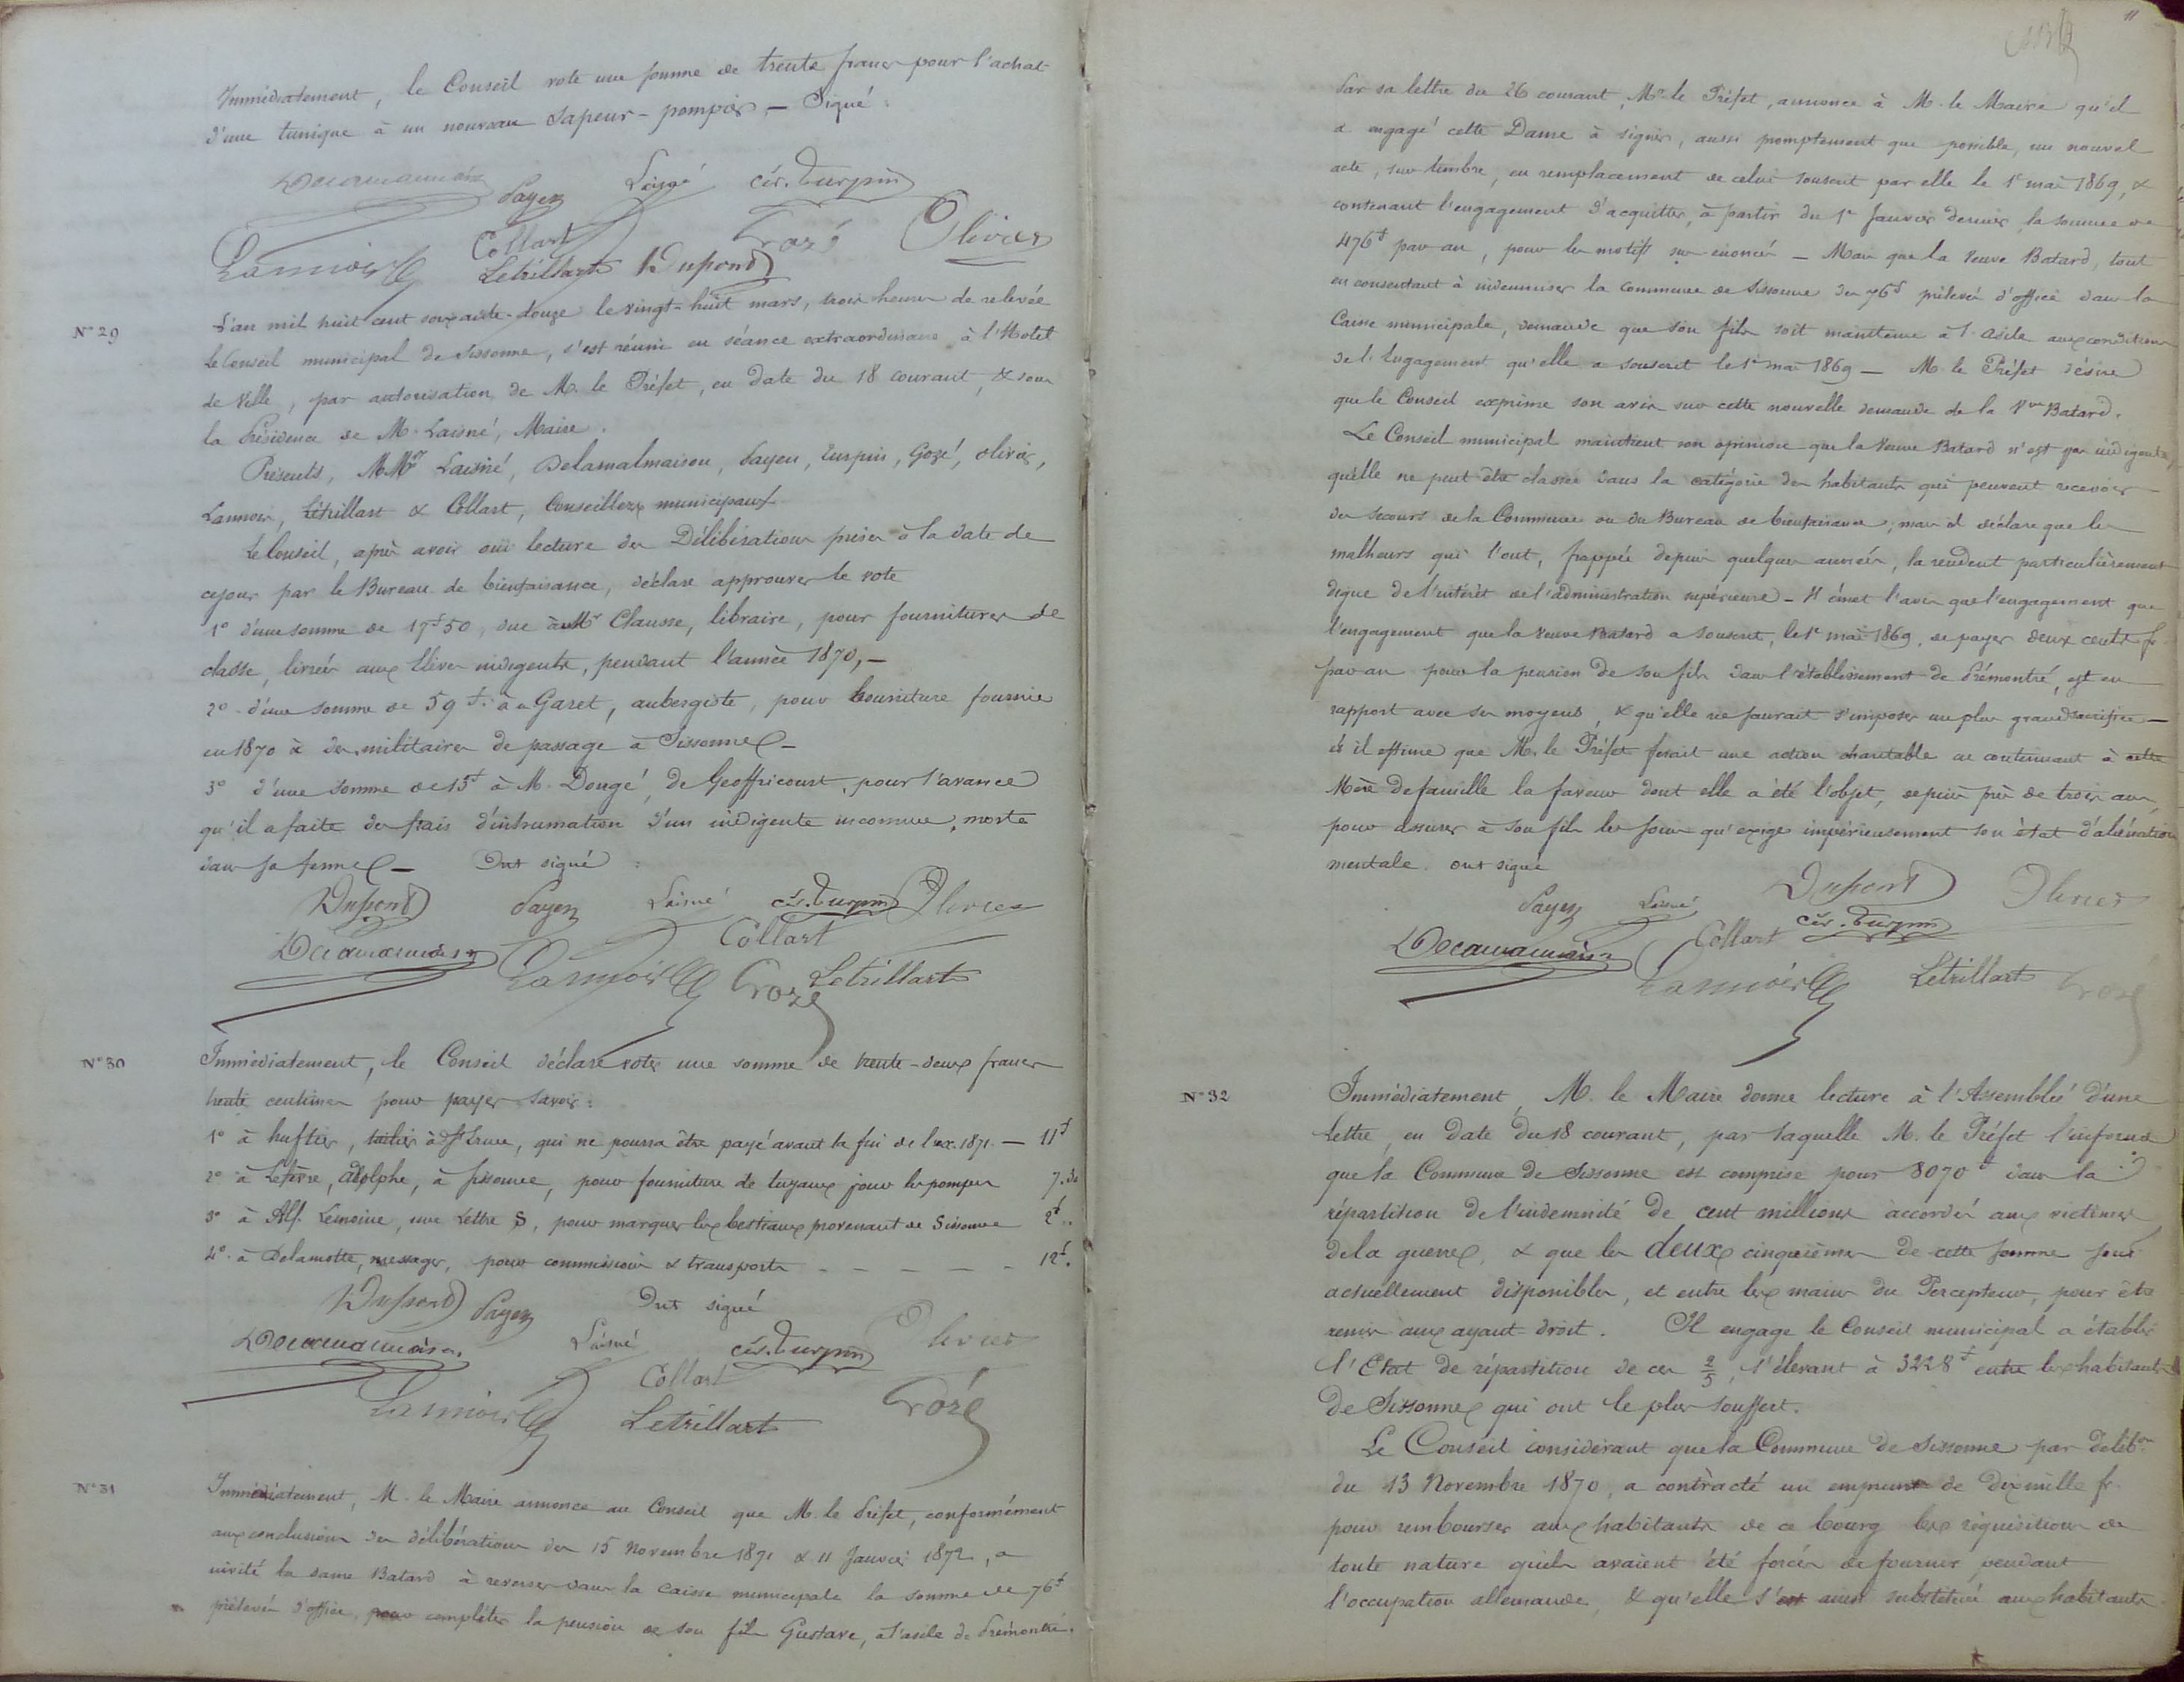 Immédiatement, le Conseil vote une somme de trente francs pour l'achat
d'une tunique à un nouveau Sapeur-pompier — Signé :
Delamalmaison Payen Laisné cés. Turpin
Lannois Collart Letrillart Dupont Gozé Olivier
N° 29
L'an mil huit cent soixante-douze le vingt-huit mars, trois heures de relevée
le Conseil municipal de Sissonne, s'est réuni en séance extraordinaire à l'Hotel
de Ville, par autorisation de M. le Préfet, en date du 18 courant, & sous
la Présidence de M. Laisné, Maire.
Présents, MM. Laisné, Delamalmaison, Payen, Turpin, Gozé, Olivier,
Lannois, Létrillart & Collart, Conseillers municipaux
Le Conseil, après avoir oui lecture des Délibérations prises à la date de
ce jour par le Bureau de bienfaisance, déclare approuver le vote
1° d'une somme de 17f50, due à Mr Clausse, libraire, pour fournitures de
classe, livrées aux Elèves indigents, pendant l'année 1870, —
2° d'une somme de 59f. à Garet, aubergiste, pour nourriture fournie
en 1870 à des militaires de passage à Sissonne —
3° d'une somme de 15f à M. Dougé, de Geoffricourt, pour l'avance
qu'il a faite des frais d'inhumation d'un indigente inconnue, morte
dans sa ferme — Ont signé :
Dupont Payen Laisné cés. Turpin Olivier
Delamalmaison Lannois Collart Gozé Letrillart
N° 30
Immédiatement, le Conseil déclare voter une somme de trente-deux francs
trente centimes pour payer savoir :
1° à huftier, à St Erme, qui ne pourra être payé avant la fin de l'ex. 1871. — 11f
2° à Lefèvre, Adolphe, à Sissonne, pour fourniture de tuyaux pour les pompes 7.30
3° à Alf. Lemoine, une Lettre S, pour marquer les bestiaux provenant de Sissonne 2f..
4° à Delamotte, messager, pour commissions & transports — — — — — 12f.
Ont signé
Dupont Payen
Delamalmaison Laisné cés. Turpin Olivier
Lannois Collart Letrillart Gozé
N° 31
Immédiatement, M. le Maire annonce au Conseil que M. le Préfet, conformément
aux conclusions des délibérations des 15 Novembre 1871 & 11 Janvier 1872, a
invité la dame Batard à reverser dans la caisse municipale la somme de 76f
prélevés d'office, pour compléter la pension de son fils Gustave, à l'asile de Prémontré.
11
Par sa lettre du 26 courant, Mr. le Préfet, annonce à M. le Maire qu'il
a engagé cette Dame à signer, aussi promptement que possible, un nouvel
acte, sur timbre, en remplacement de celui souscrit par elle le 1r mai 1869, &
contenant l'engagement d'acquitter, à partir du 1r Janvier dernier, la somme de
476f par an, pour les motifs sus énoncés — Mais que la Veuve Batard, tout
en consentant à indemniser la commune de Sissonne des 76f prélevés d'office dans la
Caisse municipale, demande que son fils soit maintenu à l'asile aux conditions
de l'Engagement qu'elle a souscrit le 1r mai 1869 — M. le Préfet désire
que le Conseil exprime son avis sur cette nouvelle demande de la Vve Batard.
Le Conseil municipal maintient son opinion que la Veuve Batard n'est pas indigente,
qu'elle ne peut être classée dans la catégorie des habitants qui peuvent recevoir
des secours de la Commune ou du Bureau de bienfaisance; mais il déclare que les
malheurs qui l'ont, frappée depuis quelques années, la rendent particulièrement
digne de l'intérêt de l'administration supérieure — Il émet l'avis que l'engagement que
l'engagement que la Veuve Batard a souscrit, le 1r mai 1869, de payer deux cents f.
par an pour la pension de son fils dans l'établissement de Prémontré, est en
rapport avec ses moyens, & qu'elle ne saurait s'imposer un plus grand sacrifice —
& il estime que M. le Préfet ferait une action charitable en continuant à cette
Mère de famille la faveur dont elle a été l'objet, depuis près de trois ans,
pour assurer à son fils les soins qu'exige impérieusement son état d'aliénation
mentale. Ont signé
Payen Laisné Dupont Olivier
Delamalmaison Collart cés. Turpin
Lannois Letrillart Gozé
N° 32
Immédiatement, M. le Maire donne lecture à l'Assemblée d'une
Lettre, en date du 18 courant, par laquelle M. le Préfet l'informe
que la Commune de Sissonne est comprise pour 8070f dans la
répartition de l'indemnité de cent millions accordés aux victimes
de la guerre, & que les deux cinquièmes de cette somme sont
actuellement disponibles, et entre les mains du Percepteur, pour être
remis aux ayant-droit. Il engage le Conseil municipal a établir
l'Etat de répartition de ces 2/5, s'élevant à 3228f entre les habitants
de Sissonne qui ont le plus souffert.
Le Conseil considérant que la Commune de Sissonne par délibon
du 13 Novembre 1870, a contracté un emprunt de Dix mille fr.
pour rembourser aux habitants de ce bourg les réquisitions de
toute nature qu'ils avaient été forcés de fournir pendant
l'occupation allemande, & qu'elle s'est ainsi substituée aux habitants